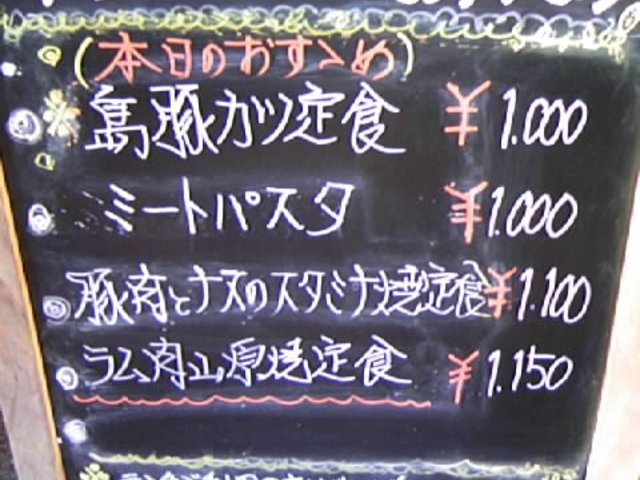 (本日のおすゝめ)
島豚カツ定食 ¥1.000
ミートパスタ ¥1.000
豚肉とナスのスタミナ焼定食 ¥1.100
ラム肉山原焼定食 ¥1.150